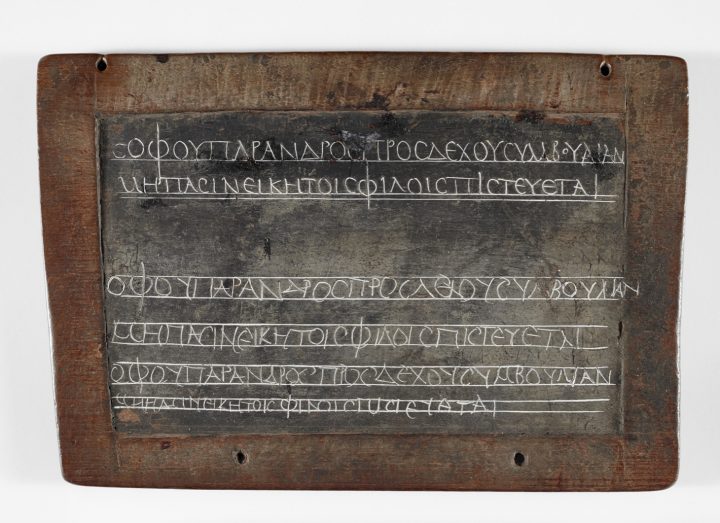 ϹΟΦΟΥΠΑΡΑΝΔΡΟϹΠΡΟϹΔΕΧΟΥϹΥΜΒΟΥΛΙΑΝ
ΜΗΠΑϹΙΝΕΙΚΗΤΟΙϹΦΙΛΟΙϹΠΙϹΤΕΥΕΤΑΙ
ΟΦΟΥΠΑΡΑΝΔΡΟϹΠΡΟϹΔΕΟΥϹΥΜΒΟΥΛΙΑΝ
ΜΗΠΑϹΙΝΕΙΚΗΤΟΙϹΦΙΛΟΙϹΠΙϹΤΕΥΕΤΑΙ
ΟΦΟΥΠΑΡΑΝΔΡΟϹΠΡΟϹΔΕΧΟΥϹΥΜΒΟΥΛΙΑΝ
ΜΗΠΑϹΙΝΕΙΚΗΤΟΙϹΦΙΛΟΙϹΠΙϹΤΕΥΕΤΑΙ